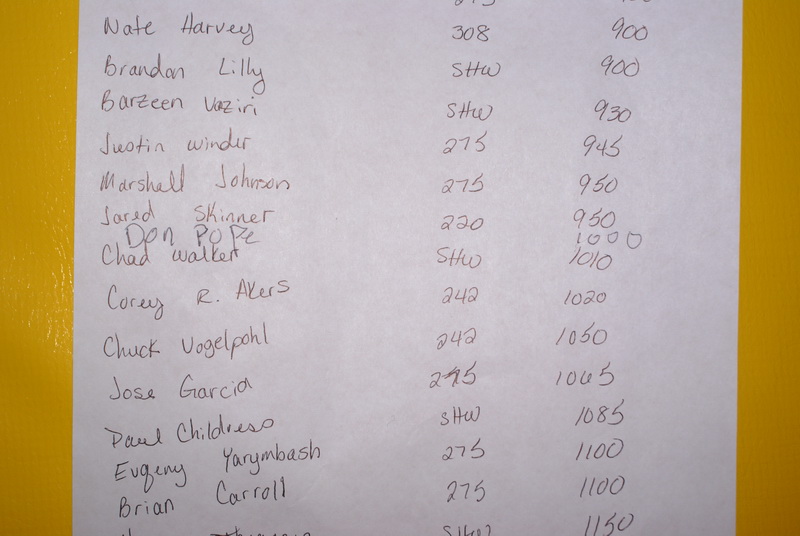 Nate Harvey 308 900
Brandon Lilly SHW 900
Barzeen Vaziri SHW 930
Justin Winder 275 945
Marshall Johnson 275 950
Jared Skinner 220 950
Don Pope 1000
Chad Walker SHW 1010
Corey R. Akers 242 1020
Chuck Vogelpohl 242 1050
Jose Garcia 275 1065
Paul Childress SHW 1085
Evgeny Yarymbash 275 1100
Brian Carroll 275 1100
SHW 1150